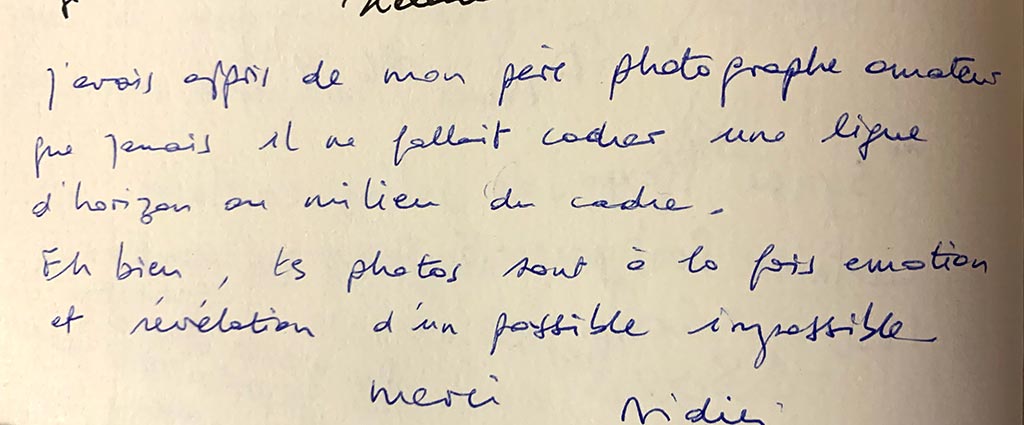 J'avais appris de mon père photographe amateur
que jamais il ne fallait cadrer une ligne
d'horizon au milieu du cadre.
Eh bien, tes photos sont à la fois emotion
et révélation d'un possible impossible
merci Didier